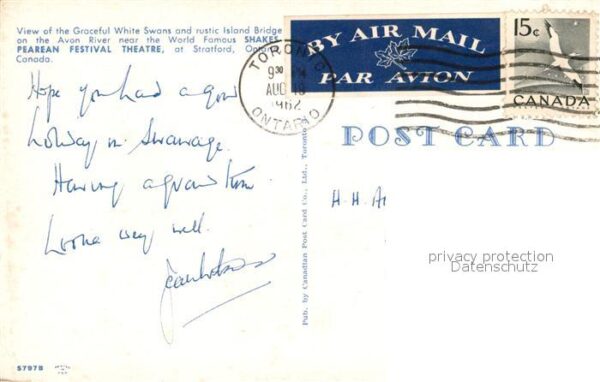 View of the Graceful White Swans and rustic Island Bridge
on the Avon River near the World Famous SHAKES-
PEAREAN FESTIVAL THEATRE, at Stratford, Ontario,
Canada.
BY AIR MAIL
PAR AVION
15¢
CANADA
TORONTO
9³⁰ PM
AUG 18
1962
ONTARIO
POST CARD
Hope you had a good
holiday in Swanage.
Having a grand time.
Lorna very well.
H. H. A
privacy protection
Datenschutz
Pub. by Canadian Post Card Co., Ltd., Toronto
57978